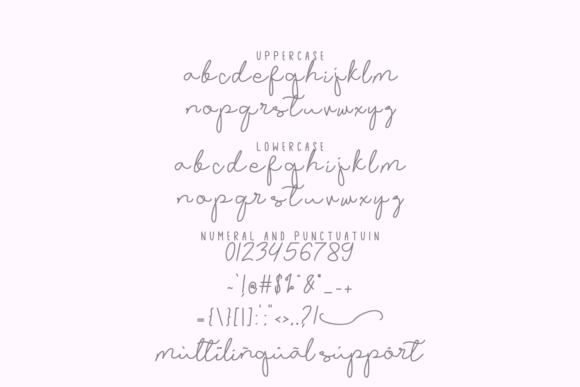 UPPERCASE
abcdefghijklm
nopqrstuvwxyz
LOWERCASE
abcdefghijklm
nopqrstuvwxyz
NUMERAL AND PUNCTUATUIN
0123456789
~`!@#$%^&*_-+
={\}[|]:;'"<>,.?/
müttïlïñgüãl súppórt